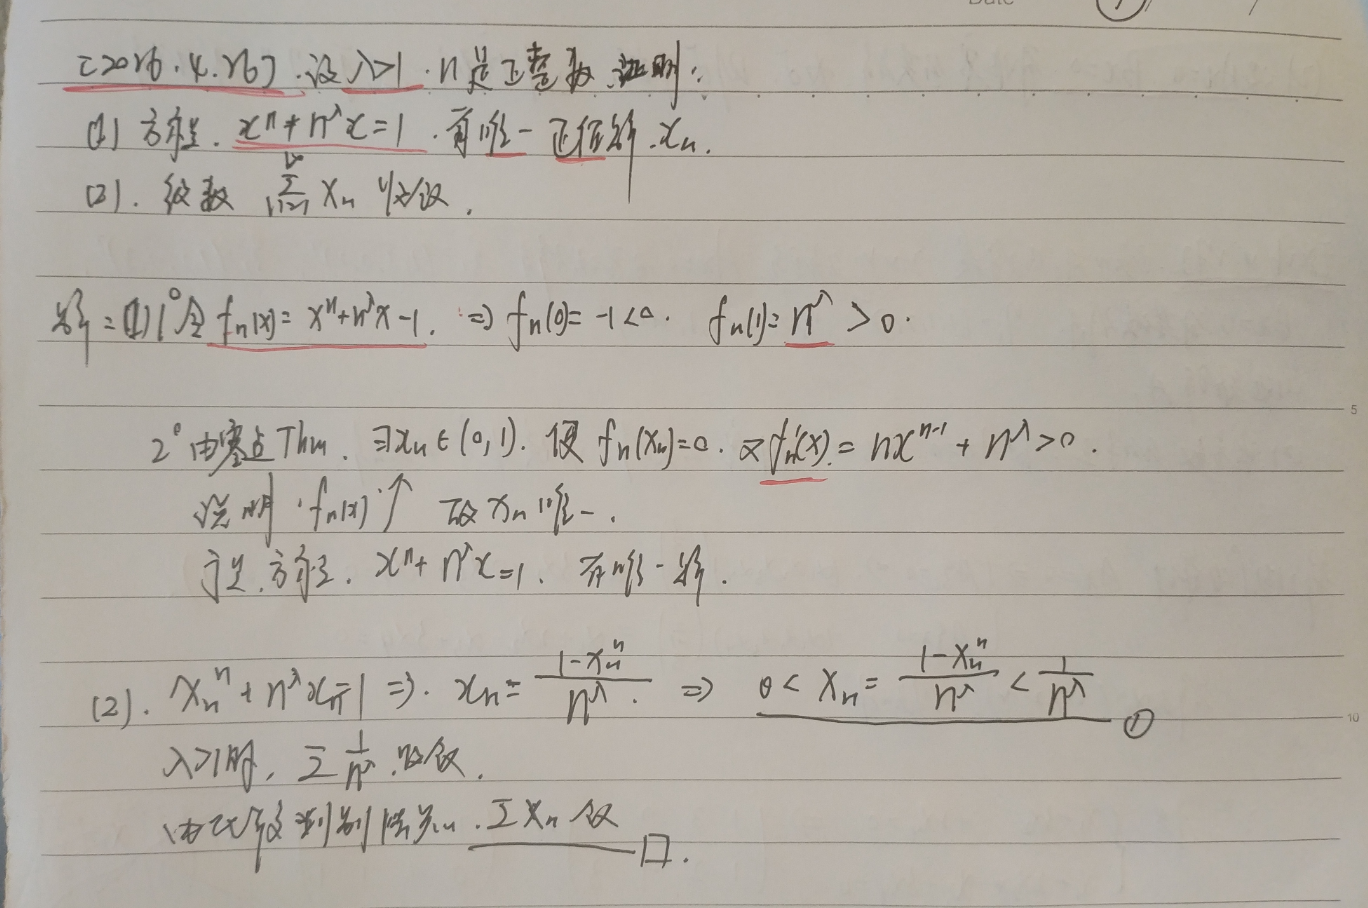 Date 1
[2026.4.26].设λ>1.n是正整数.证明:
(1) 方程. xⁿ+n^λx=1.有唯一正值解.xₙ.
(2). 级数 ∑xₙ 收敛.
解:(1) 1°令 fₙ(x)=xⁿ+n^λx-1. ⇒ fₙ(0)=-1<0. fₙ(1)=n^λ>0.
5
2°由零点Thm. ∃xₙ∈(0,1). 使 fₙ(xₙ)=0. 又fₙ'(x)=nxⁿ⁻¹+n^λ>0.
说明.fₙ(x)↑ 故xₙ唯一.
于是.方程. xⁿ+n^λx=1. 有唯一解.
(2). xₙⁿ+n^λxₙ=1 ⇒. xₙ=(1-xₙⁿ)/n^λ. ⇒ 0<xₙ=(1-xₙⁿ)/n^λ<1/n^λ ①
10
λ>1时, ∑1/n^λ.收敛.
由比较判别法知.∑xₙ敛 □.